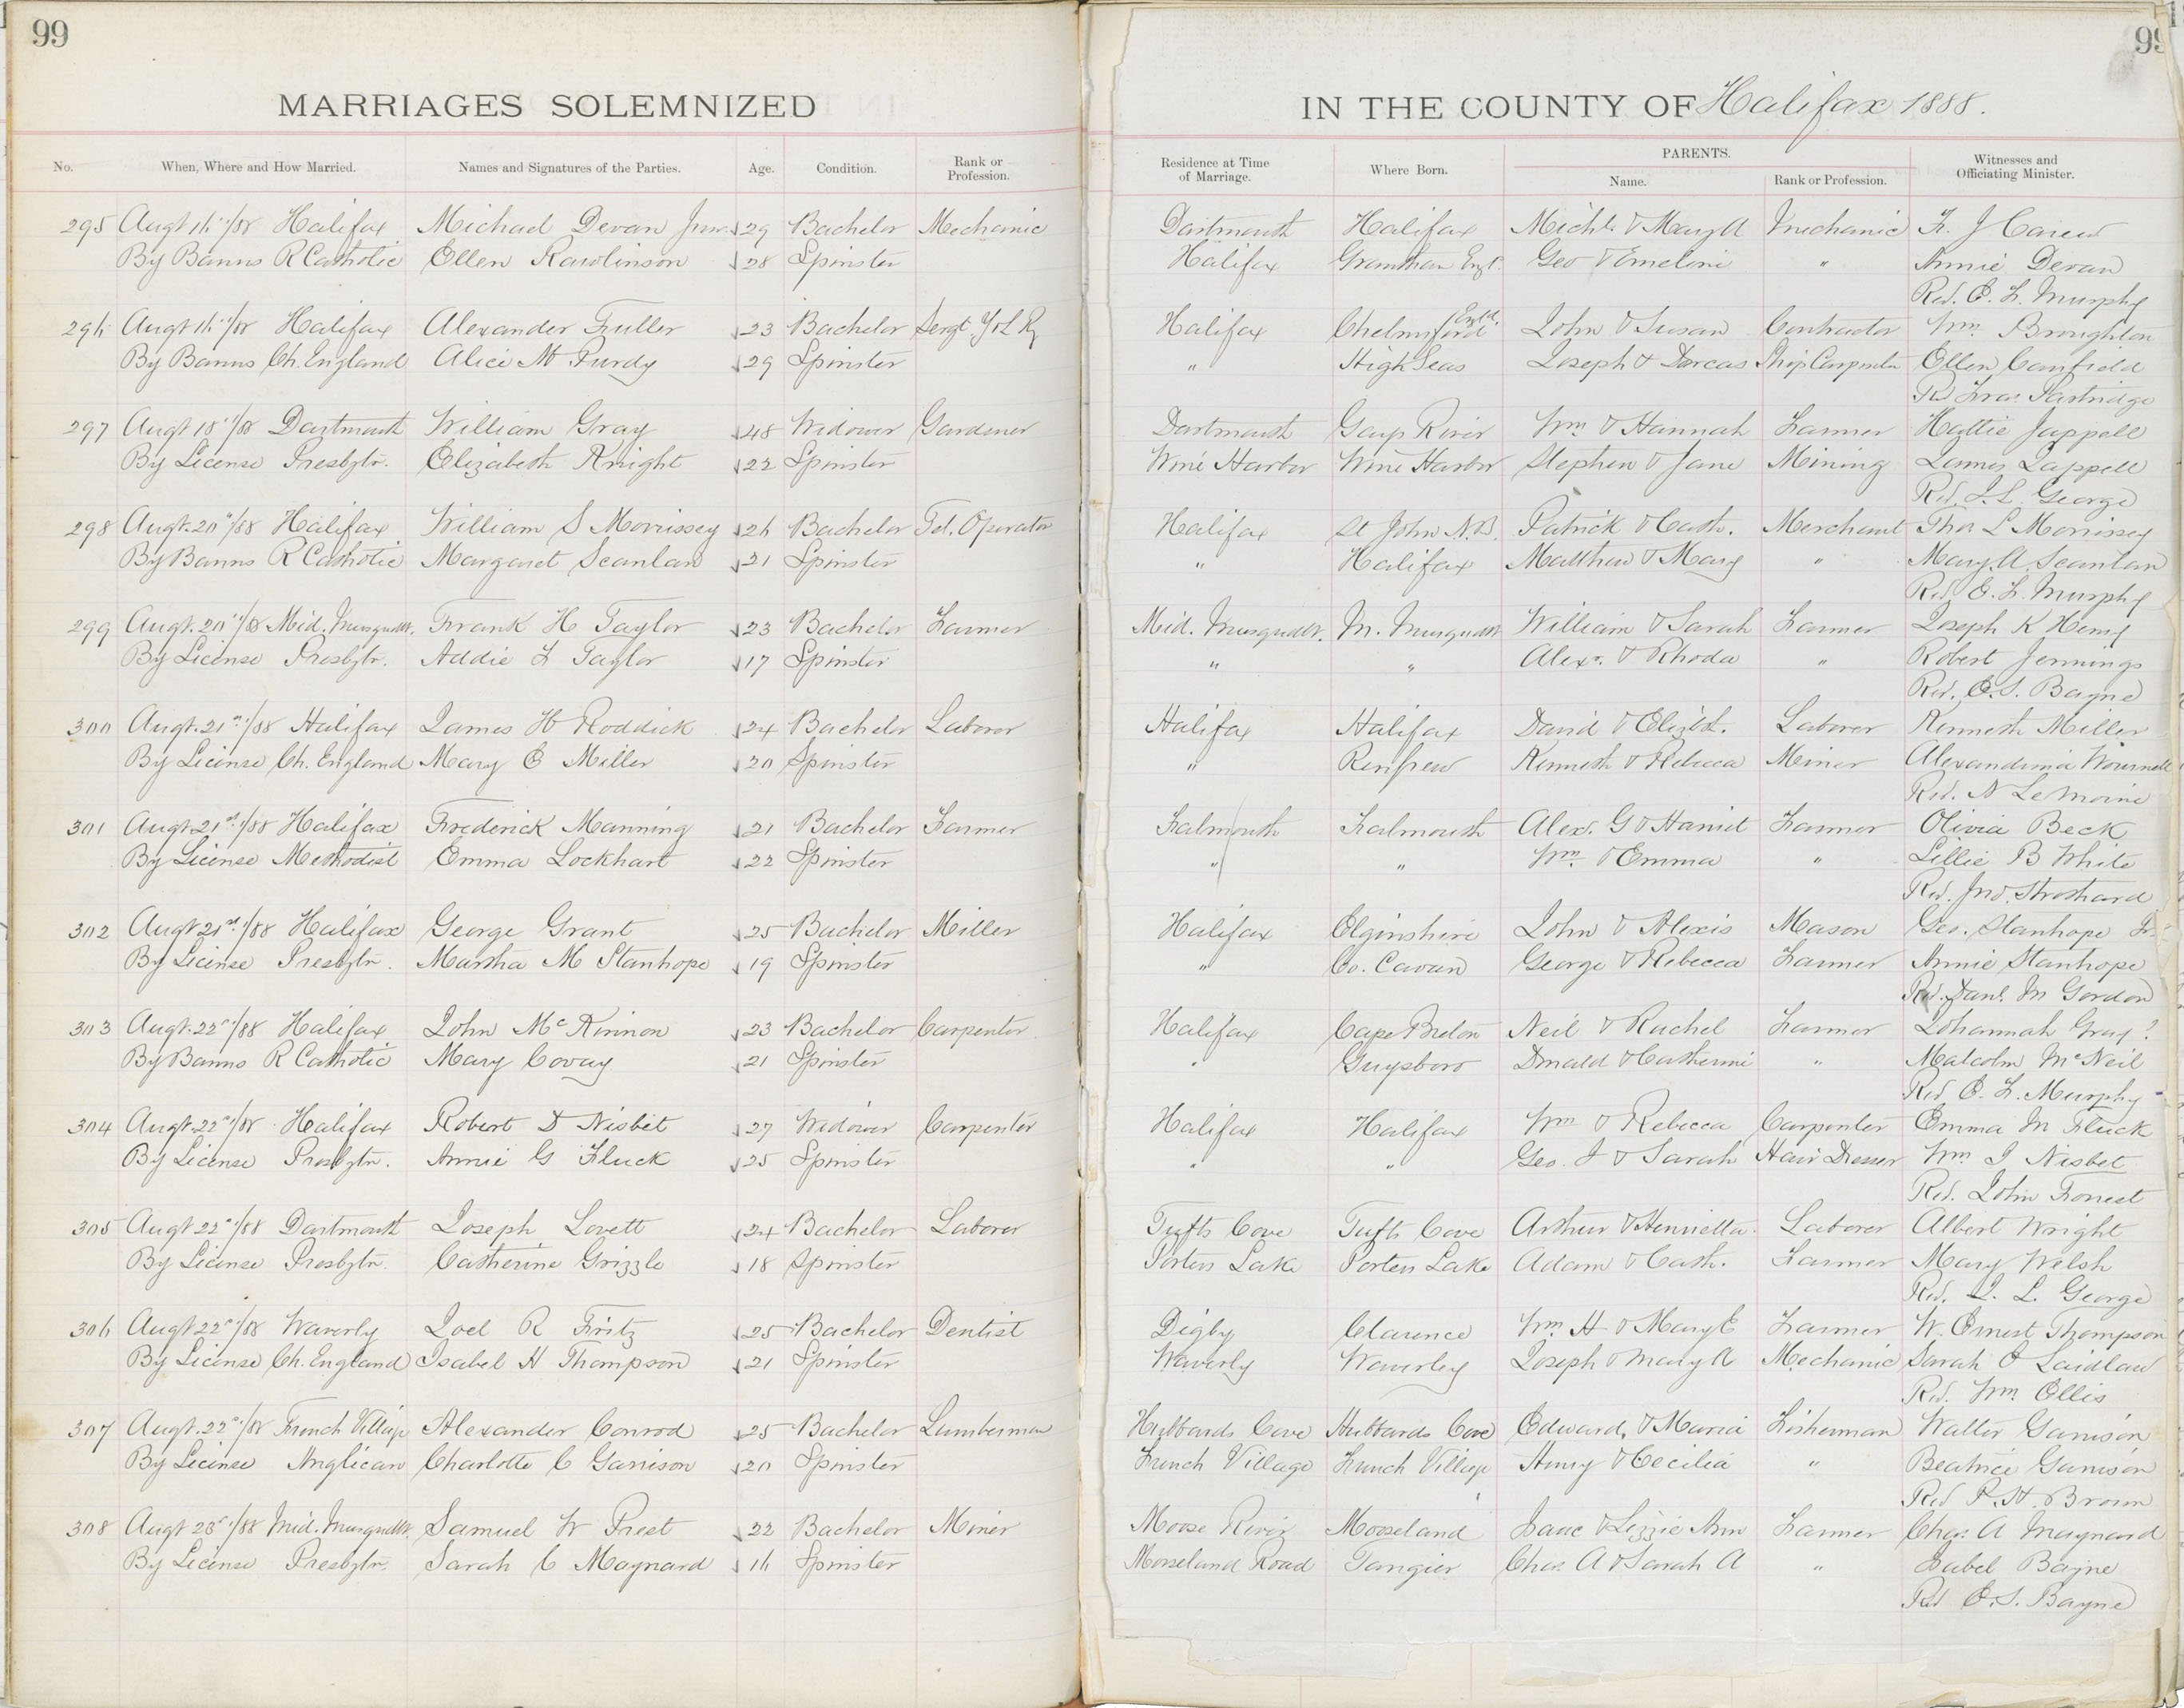 99
99
MARRIAGES SOLEMNIZED
IN THE COUNTY OF Halifax 1888.
No. When, Where and How Married. Names and Signatures of the Parties. Age. Condition. Rank or Profession. Residence at Time of Marriage. Where Born. PARENTS. Name. Rank or Profession. Witnesses and Officiating Minister.
295 Augt 16"/88 Halifax Michael Devan Junr 29 Bachelor Mechanic Dartmouth Halifax Michl. & Mary A Mechanic F. J Carew
By Banns R Catholic Ellen Rawlinson 28 Spinster Halifax Grantham Engt. Geo & Emeline " Annie Devan
Rev. E. F. Murphy
296 Augt 16"/88 Halifax Alexander Fuller 23 Bachelor Sergt. Y & L Rg Halifax Chelmsford Engld. John & Susan Contractor Wm Broughton
By Banns Ch. England Alice M Purdy 29 Spinster " High Seas Joseph & Dorcas Ship Carpenter Ellen Canfield
Rd Fras. Partridge
297 Augt 18"/88 Dartmouth William Gray 48 Widower Gardener Dartmouth Gays River Wm & Hannah Farmer Hattie Jappell
By License Presbytn. Elizabeth Knight 22 Spinster Wine Harbor Wine Harbor Stephen & Jane Mining James Lappell
Rev. J. L. George
298 Augt. 20"/88 Halifax William S Morrissey 26 Bachelor Tel. Operator Halifax St John N.B. Patrick & Cath. Merchant Thos L Morrissey
By Banns R Catholic Margaret Scanlan 21 Spinster " Halifax Matthew & Mary " Mary A. Scanlan
Rev E. F. Murphy
299 Augt. 20"/88 Mid. Musqudbt. Frank H Taylor 23 Bachelor Farmer Mid. Musqudbt. M. Musqudbt William & Sarah Farmer Joseph K Henry
By License Presbytn. Addie F Taylor 17 Spinster " " Alexr. & Rhoda " Robert Jennings
Rev. E. S. Bayne
300 Augt. 21st/88 Halifax James H Roddick 24 Bachelor Laborer Halifax Halifax David & Elizbt. Laborer Kenneth Miller
By License Ch. England Mary E Miller 20 Spinster " Renfrew Kenneth & Rebecca Miner Alexandrina Wournell
Rev. N LeMoine
301 Augt 21st/88 Halifax Frederick Manning 21 Bachelor Farmer Falmouth Falmouth Alex. G & Harriet Farmer Olivia Beck
By License Methodist Emma Lockhart 22 Spinster " " Wm. & Emma " Lillie B White
Rev. Jno. Strothard
302 Augt 21st/88 Halifax George Grant 25 Bachelor Miller Halifax Elginshire John & Alexis Mason Geo. Stanhope Jr.
By License Presbytn. Martha M Stanhope 19 Spinster " Co. Cavan George & Rebecca Farmer Annie Stanhope
Rev. Danl. M Gordon
303 Augt. 22"/88 Halifax John McKinnon 23 Bachelor Carpenter Halifax Cape Breton Neil & Rachel Farmer Johannah Gray?
By Banns R Catholic Mary Covay 21 Spinster " Guysboro Donald & Catherine " Malcolm McNeil
Rev E. F. Murphy
304 Augt. 22"/88 Halifax Robert D Nisbet 27 Widower Carpenter Halifax Halifax Wm & Rebecca Carpenter Emma M Fluck
By License Presbytn. Annie G Fluck 25 Spinster " " Geo. J & Sarah Hair Dresser Wm J Nisbet
Rev. John Forrest
305 Augt 22"/88 Dartmouth Joseph Lovett 24 Bachelor Laborer Tufts Cove Tufts Cove Arthur & Henrietta Laborer Albert Wright
By License Presbytn. Catherine Grizzle 18 Spinster Porters Lake Porters Lake Adam & Cath. Farmer Mary Welsh
Rev. J. L. George
306 Augt 22"/88 Waverly Joel R Fritz 25 Bachelor Dentist Digby Clarence Wm H & Mary E Farmer W. Ernest Thompson
By License Ch. England Isabel H Thompson 21 Spinster Waverly Waverley Joseph & Mary A Mechanic Sarah E Laidlaw
Rev. Wm Ellis
307 Augt. 22"/88 French Village Alexander Conrod 25 Bachelor Lumberman Hubbards Cove Hubbards Cove Edward, & Maria Fisherman Walter Garrison
By License Anglican Charlotte C Garrison 20 Spinster French Village French Village Henry & Cecilia " Beatrice Garrison
Rev P. H. Brown
308 Augt 23"/88 Mid. Musqudbt. Samuel W Prest 22 Bachelor Miner Moose River Mooseland Isaac & Lizzie Ann Farmer Chas. A Maynard
By License Presbytn. Sarah C Maynard 16 Spinster Mooseland Road Tangier Chas A & Sarah A " Isabel Bayne
Rev E. S. Bayne